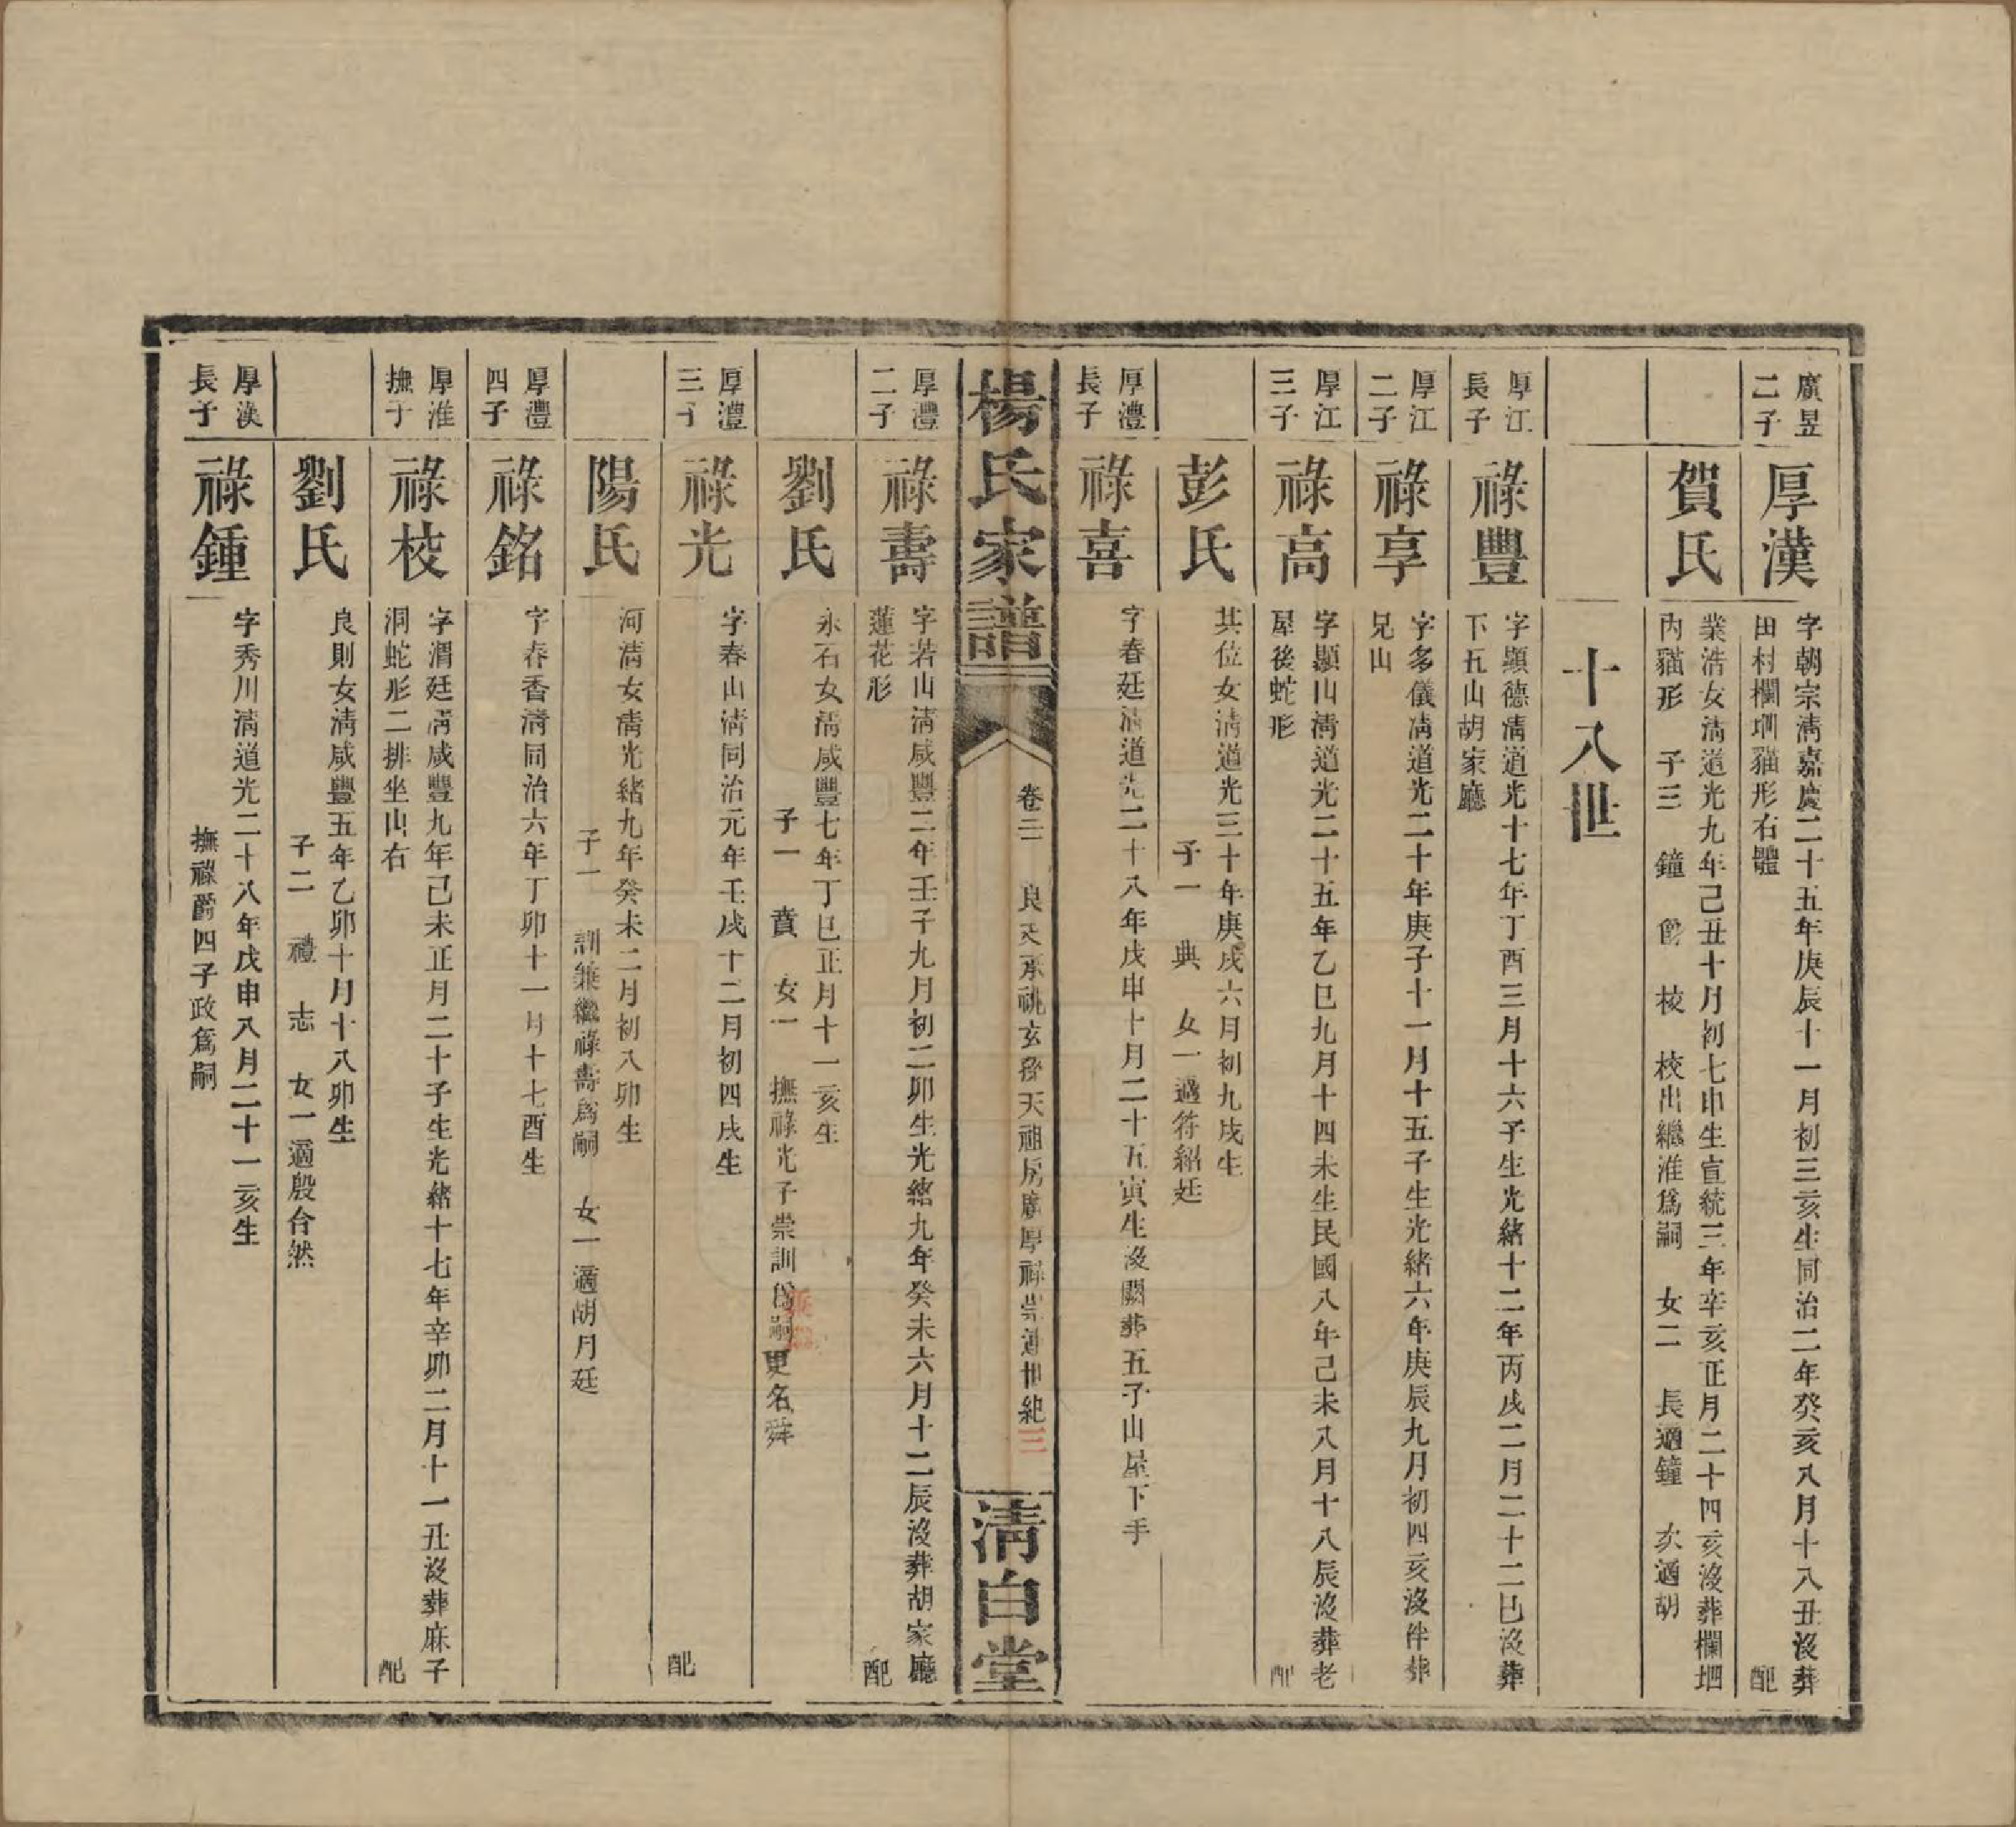 廣昱
二子
厚漢
字朝宗淸嘉慶二十五年庚辰十一月初三亥生同治二年癸亥八月十八丑沒葬
田村欄垇貓形右體
配
賀氏
業浩女淸道光九年己丑十月初七申生宣統三年辛亥正月二十四亥沒葬欄垇
內貓形 子三 鐘 爵 校 校出繼淮爲嗣 女二 長適鐘 次適胡
十八世
厚江
長子
祿豐
字顯德淸道光十七年丁酉三月十六子生光緒十二年丙戌二月二十二巳沒葬
下五山胡家廳
厚江
二子
祿享
字多儀淸道光二十年庚子十一月十五子生光緒六年庚辰九月初四亥沒伴葬
兄山
厚江
三子
祿高
字顯山淸道光二十五年乙巳九月十四未生民國八年己未八月十八辰沒葬老
屋後蛇形
配
彭氏
其位女淸道光三十年庚戌六月初九戌生
子一 典 女一適符紹廷
厚灃
長子
祿喜
字春廷淸道光二十八年戊申十月二十五寅生沒闕葬五子山屋下手
楊氏家譜
卷二 良天承祧玄孫天祖房廣厚祿崇道世紀三
淸白堂
厚灃
二子
祿壽
字若山淸咸豐二年壬子九月初二卯生光緒九年癸未六月十二辰沒葬胡家廳
蓮花形
配
劉氏
永石女淸咸豐七年丁巳正月十一亥生
子一 賁 女一 撫祿光子崇訓爲嗣更名舜
厚灃
三子
祿光
字春山淸同治元年壬戌十二月初四戌生
配
陽氏
河淸女淸光緒九年癸未二月初八卯生
子一 訓兼繼祿壽爲嗣 女一適胡月廷
厚灃
四子
祿銘
字春香淸同治六年丁卯十一月十七酉生
厚淮
撫子
祿校
字渭廷淸咸豐九年己未正月二十子生光緒十七年辛卯二月十一丑沒葬麻子
洞蛇形二排坐山右
配
劉氏
良則女淸咸豐五年乙卯十月十八卯生
子二 禮 志 女一適殷合然
厚漢
長子
祿鍾
字秀川淸道光二十八年戊申八月二十一亥生
撫祿爵四子政爲嗣